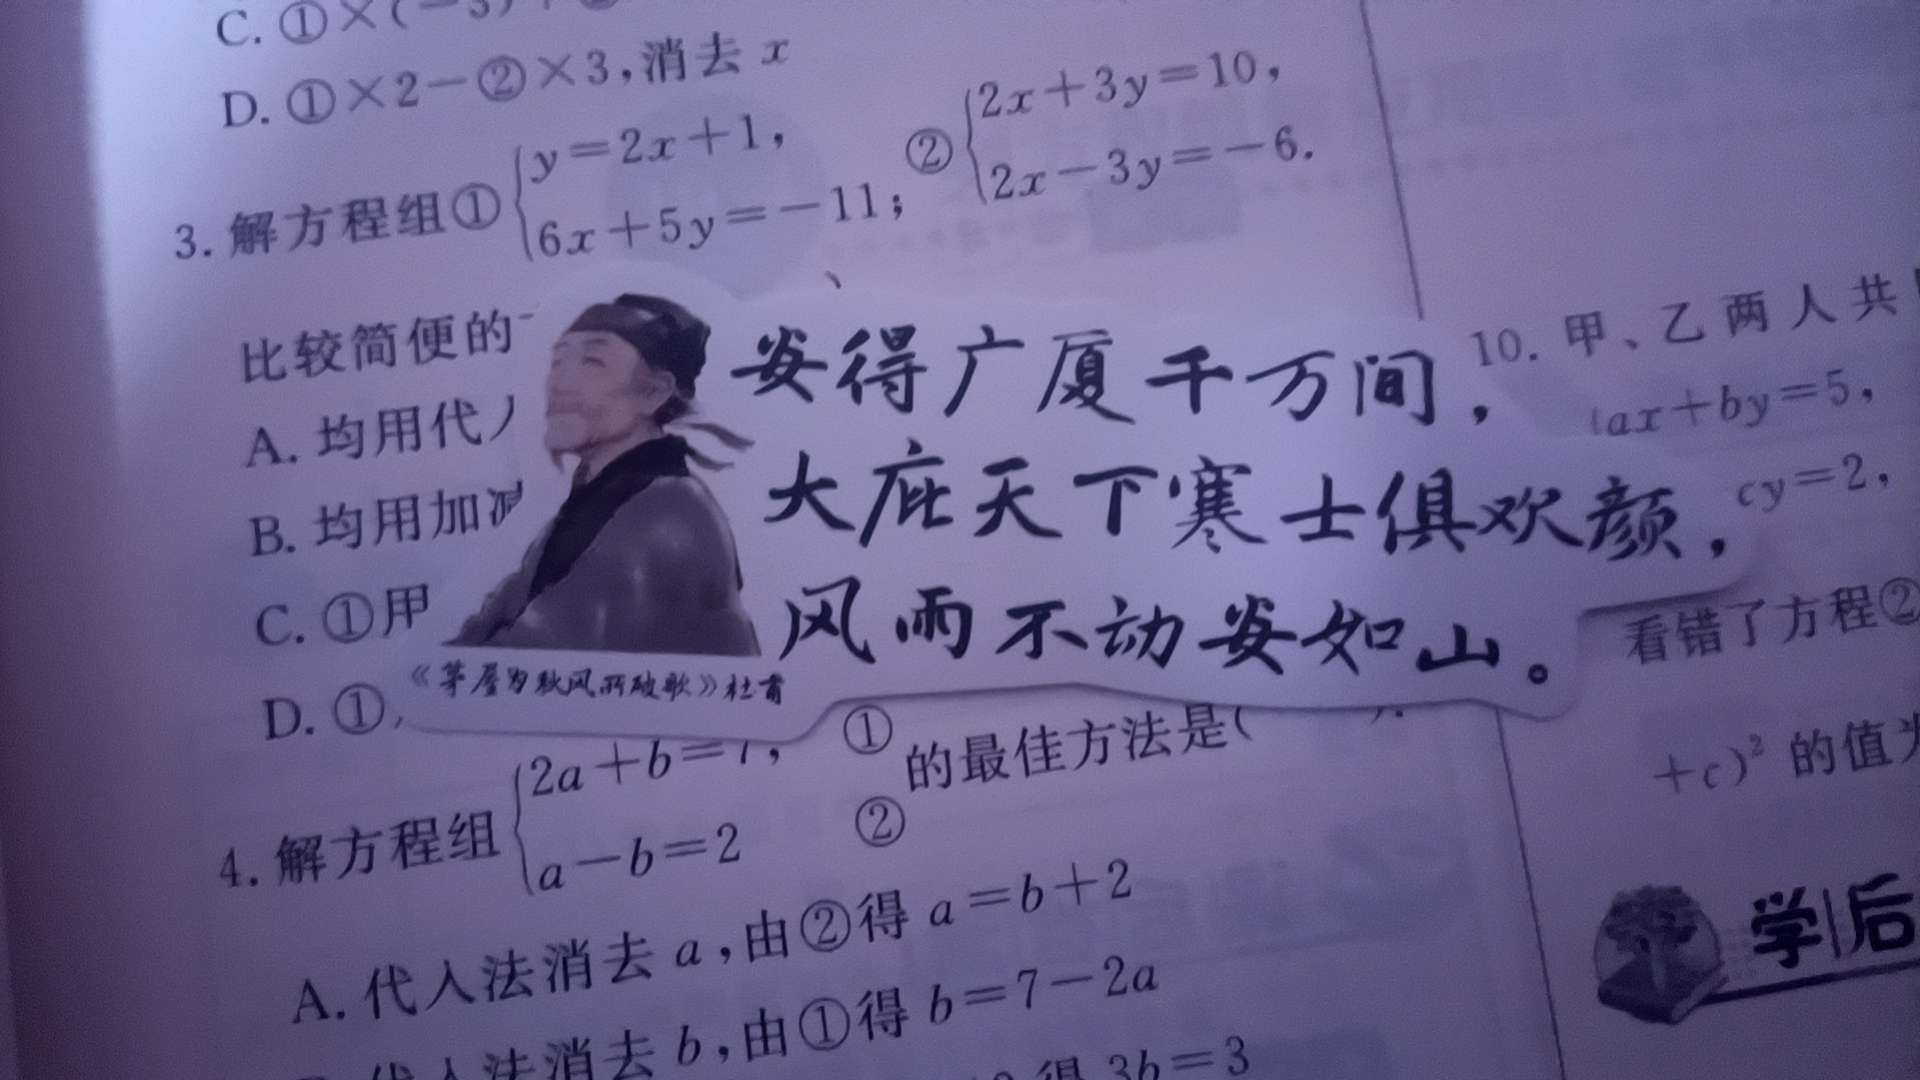 C. ①×(-3)
D. ①×2-②×3,消去 x
3. 解方程组① { y=2x+1, 6x+5y=-11; ② { 2x+3y=10, 2x-3y=-6.
比较简便的
A. 均用代
B. 均用加减
C. ①用
D. ①
安得广厦千万间，
大庇天下寒士俱欢颜，
风雨不动安如山。
《茅屋为秋风所破歌》杜甫
4. 解方程组 { 2a+b=7, ① a-b=2 ② 的最佳方法是( ).
A. 代入法消去 a,由②得 a=b+2
代入法消去 b,由①得 b=7-2a
得 3b=3
10. 甲、乙两人共
ax+by=5,
cy=2,
看错了方程②
+c)² 的值为
学后